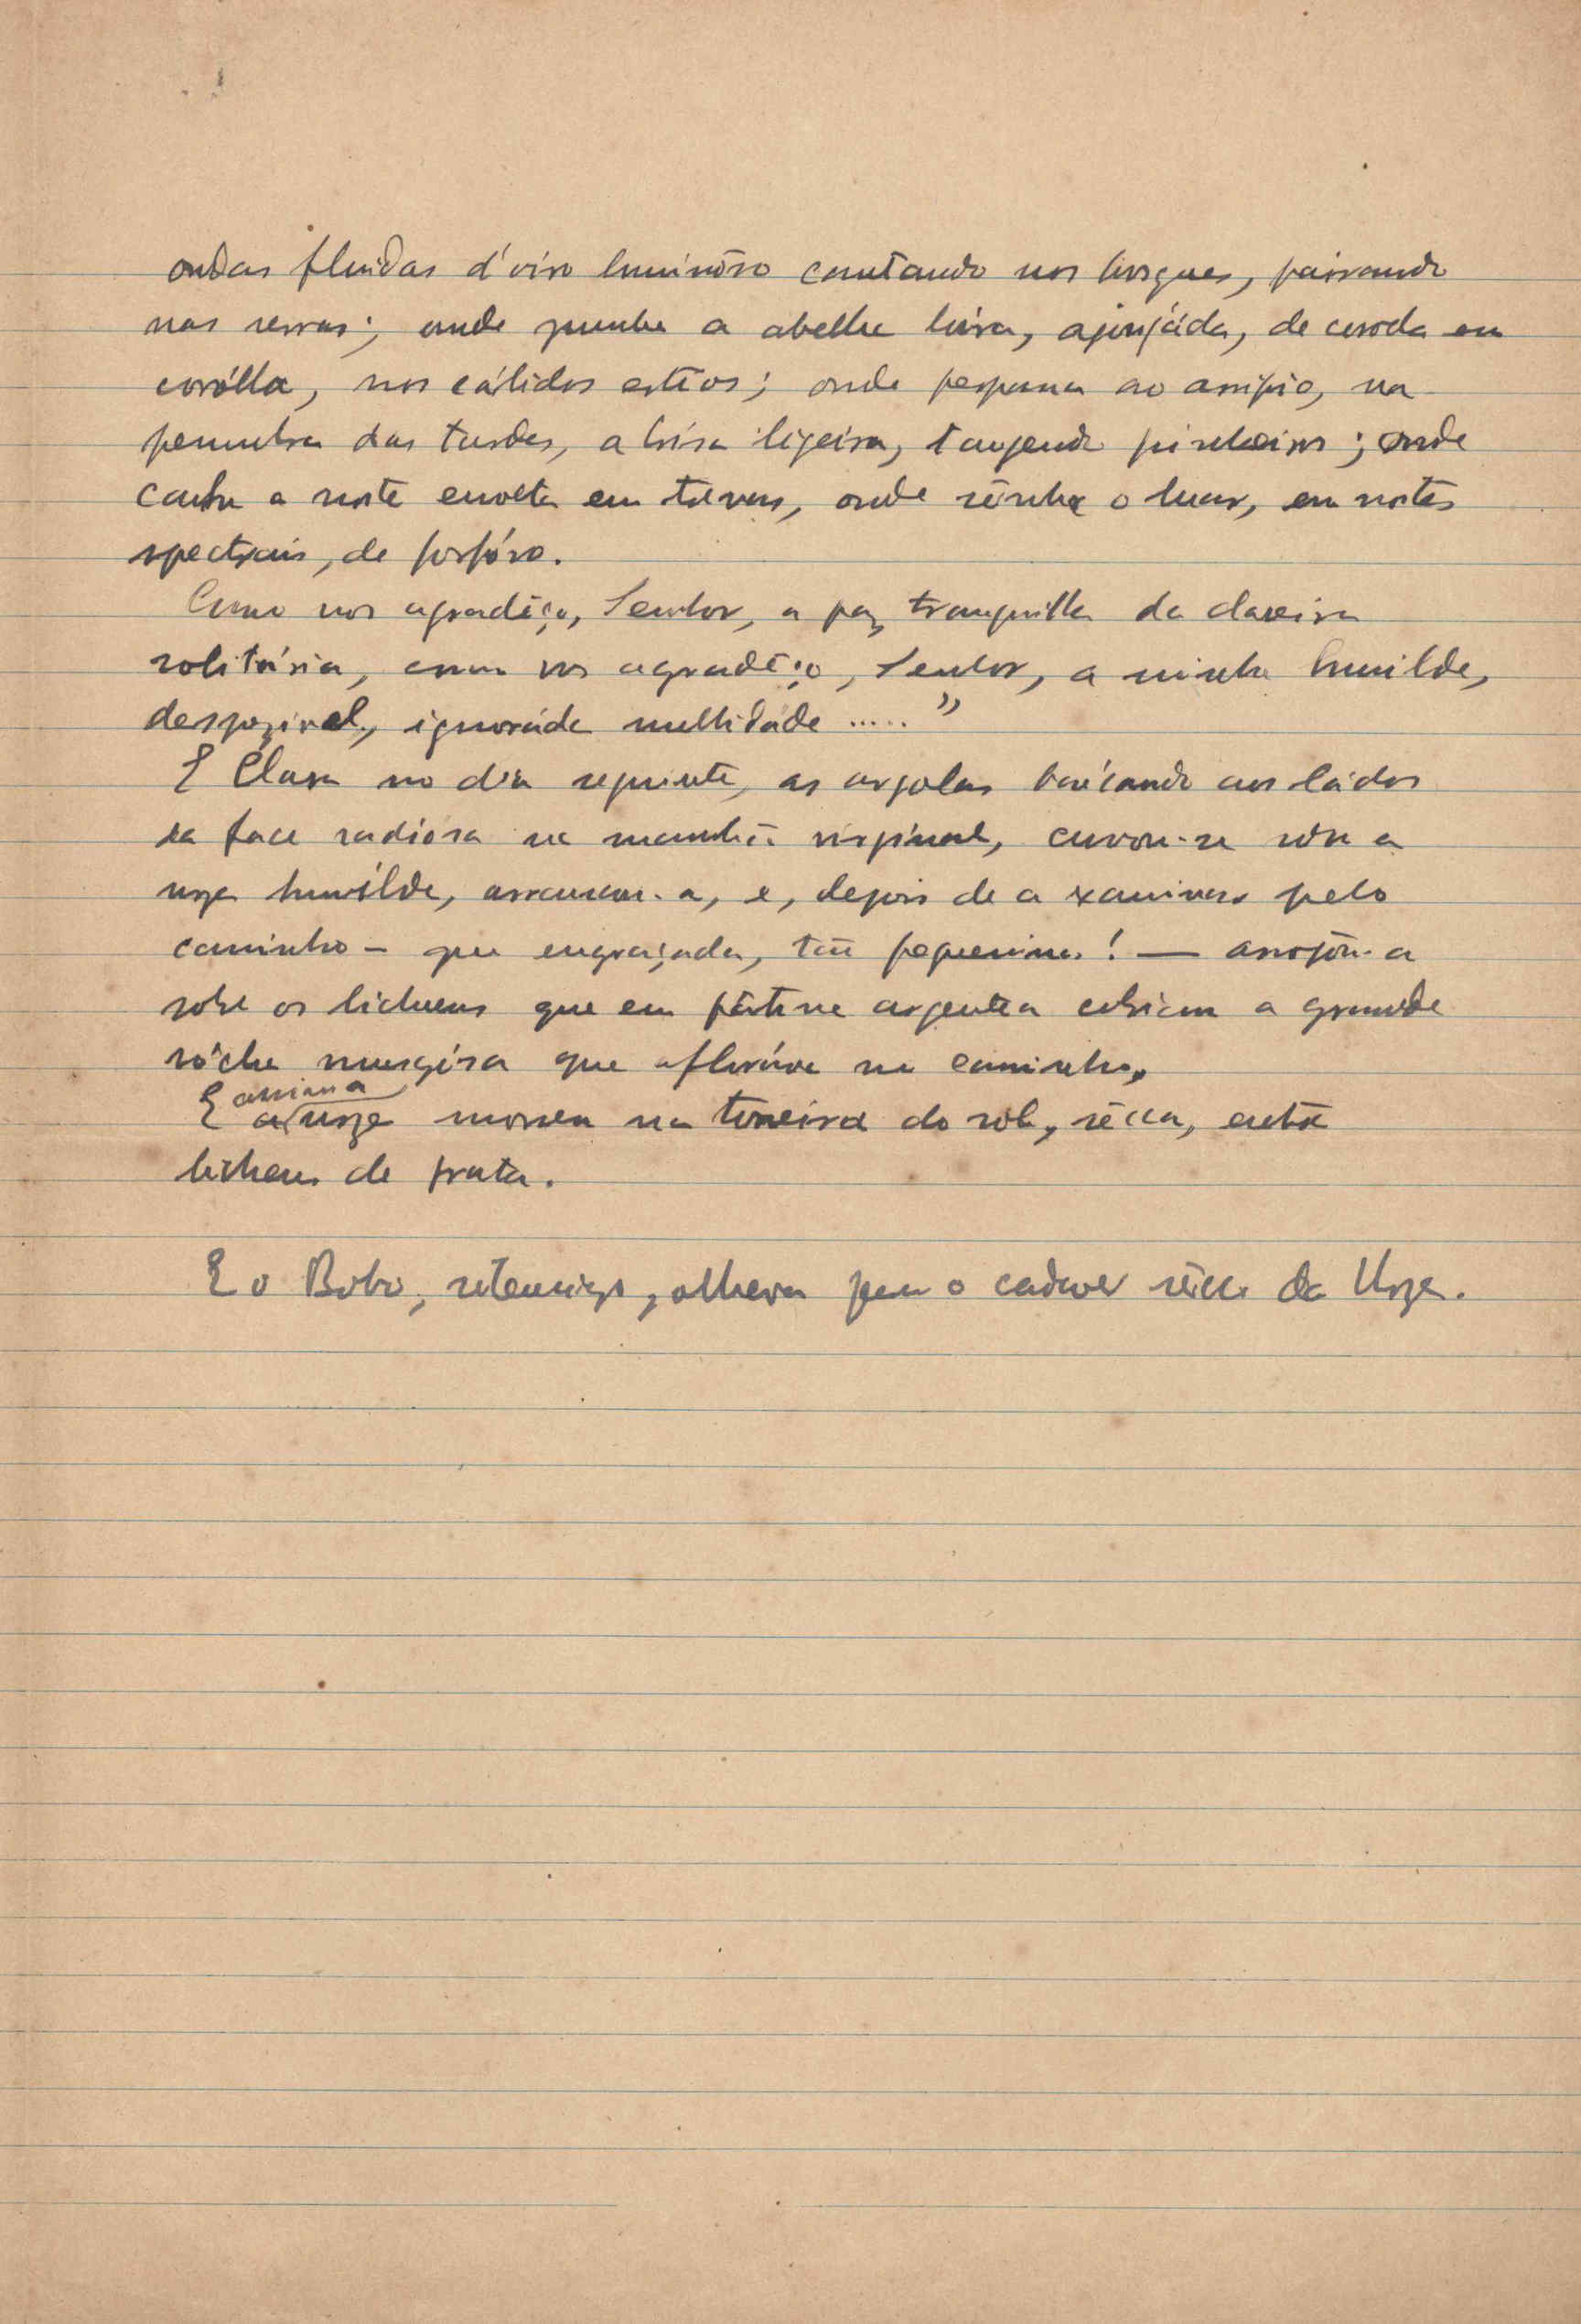 ondas fluidas d'oiro luminôso cantando nos bosques, pairando
nas serras; onde zumbe a abelha loira, ajoujáda, de corola em
corólla, nos cálidos estîos; onde perpassa ao arripio, na
penumbra das tardes, a brisa ligeira, tangendo pinheiros; onde
canta a noite envolta em trevas, onde sônha o luar, em noites
spectrais, de fosfóro.
Como vos agradêço, Senhor, a paz tranquilla da clareira
solitária, como vos agradêço, Senhor, a minha humilde,
despazivel, ignoráda nullidáde ....."
E Clara no dia seguinte, as argolas baiLando aos ládos
da face radiosa na manhã virginal, curvou-se sôbre a
urze humilde, arrancou-a, e, depois de a examinar pelo
caminho – que engraçada, tão pequenina! — arrojou-a
sobre os lichens que em pátine argentea cobriam a grande
rócha musgósa que afloráva no caminho.
E assim a
a urze morreu na torreira do sol, sêcca, entre
lichens de prata.
E o Bobo, silencioso, olhava para o cadaver sêcco da Urze.